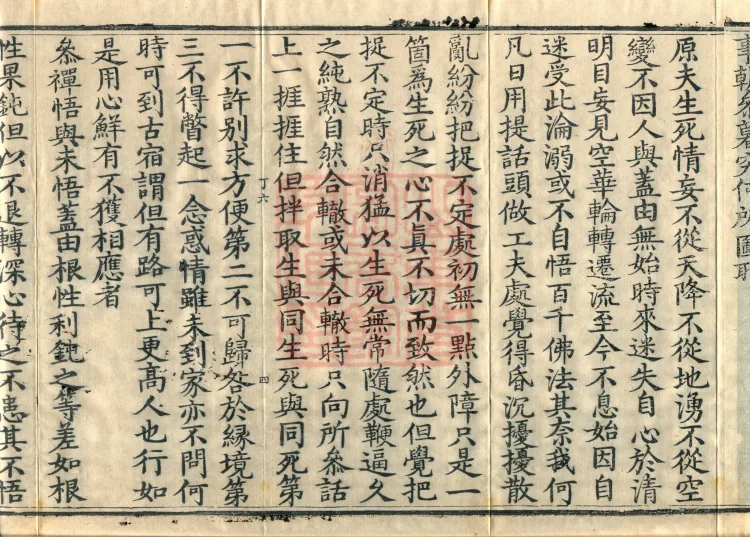 原夫生死情妄不從天降不從地湧不從空
變不因人與蓋由無始時來迷失自心於清
明目妄見空華輪轉遷流至今不息始因自
迷受此淪溺或不自悟百千佛法其奈我何
凡日用提話頭做工夫處覺得昏沉擾擾散
亂紛紛把捉不定處初無一點外障只是一
箇為生死之心不真不切而致然也但覺把
捉不定時只消猛以生死無常隨處鞭逼久
之純熟自然合轍或未合轍時只向所叅話
上一捱捱住但拌取生與同生死與同死第
丁六 四
一不許別求方便第二不可歸咎於緣境第
三不得瞥起一念惑情雖未到家亦不問何
時可到古宿謂但有路可上更高人也行如
是用心鮮有不獲相應者
叅禪悟與未悟蓋由根性利鈍之等差如根
性果鈍但以不退轉深心待之不患其不悟